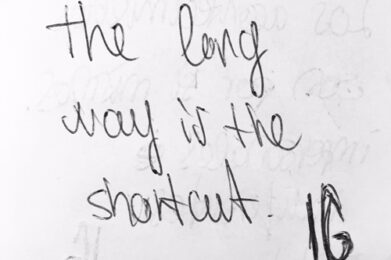 the long
way is the
shortcut.
16